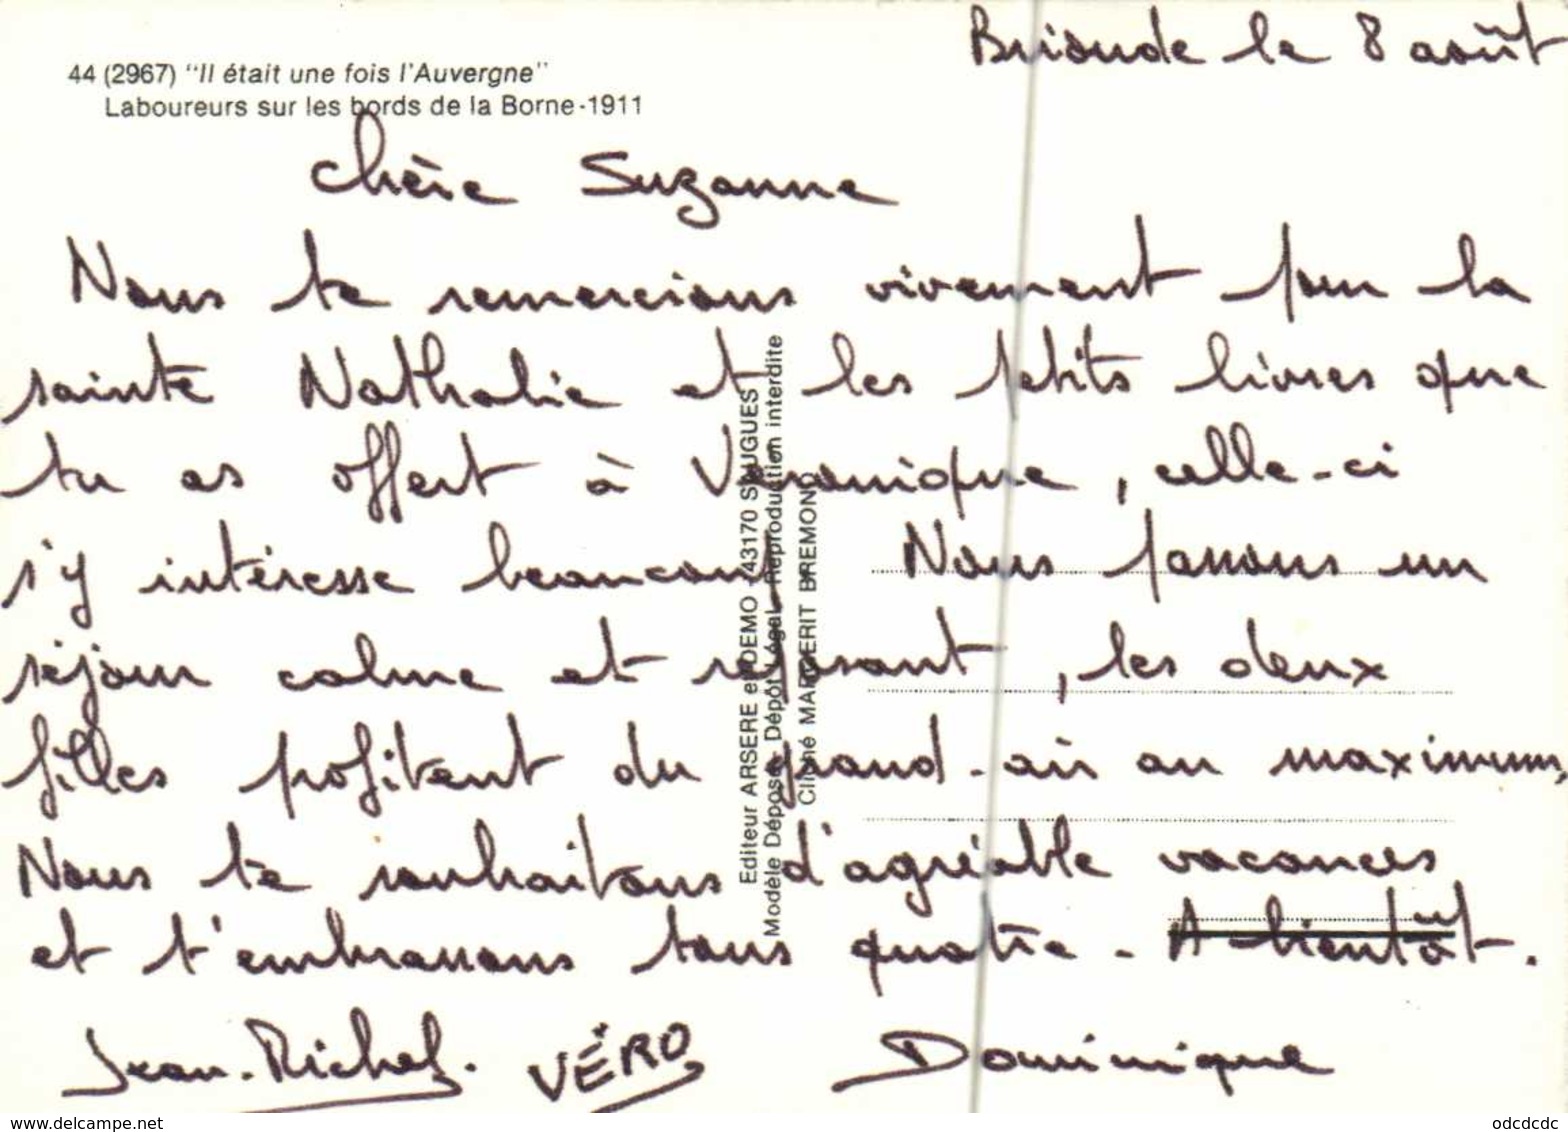 Brioude le 8 août
44 (2967) "Il était une fois l'Auvergne"
Laboureurs sur les bords de la Borne-1911
Chère Suzanne
Nous te remercions vivement pour la
sainte Nathalie et les petits livres que
tu as offert à Véronique, celle-ci
s'y intéresse beaucoup. Nous passons un
séjour calme et reposant, les deux
filles profitent du grand-air au maximum,
Nous te souhaitons d'agréable vacances
et t'embrassons tous quatre - A bientôt.
Jean-Michel. VÉRO Dominique
Editeur ARSERE et DEMO (43170 SAUGUES
Modèle Déposé - Dépôt Légal-Reproduction interdite
Cliché MARGERIT BREMOND
www.delcampe.net
odcdcdc